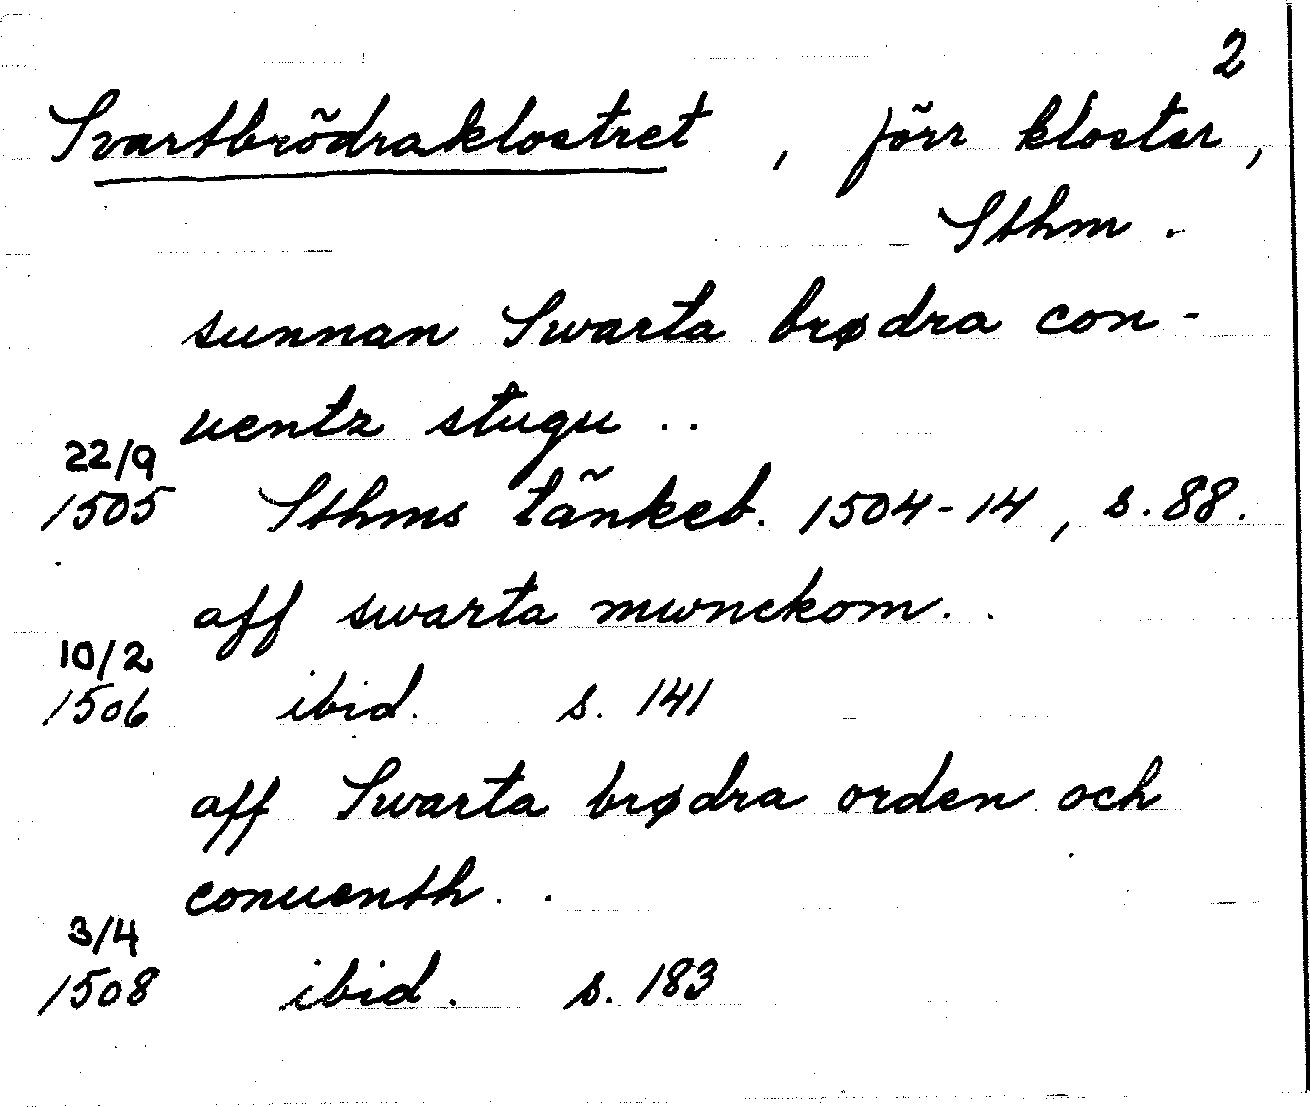 2
Svartbrödraklostret, förr kloster,
Sthm.
sunnan Swarta brødra con-
uentz stugu ..
22/9
1505 Sthms tänkeb. 1504-14, s. 88.
aff swarta mwnckom. .
10/2
1506 ibid. s. 141
aff Swarta brødra orden och
conuenth. .
3/4
1508 ibid. s. 183